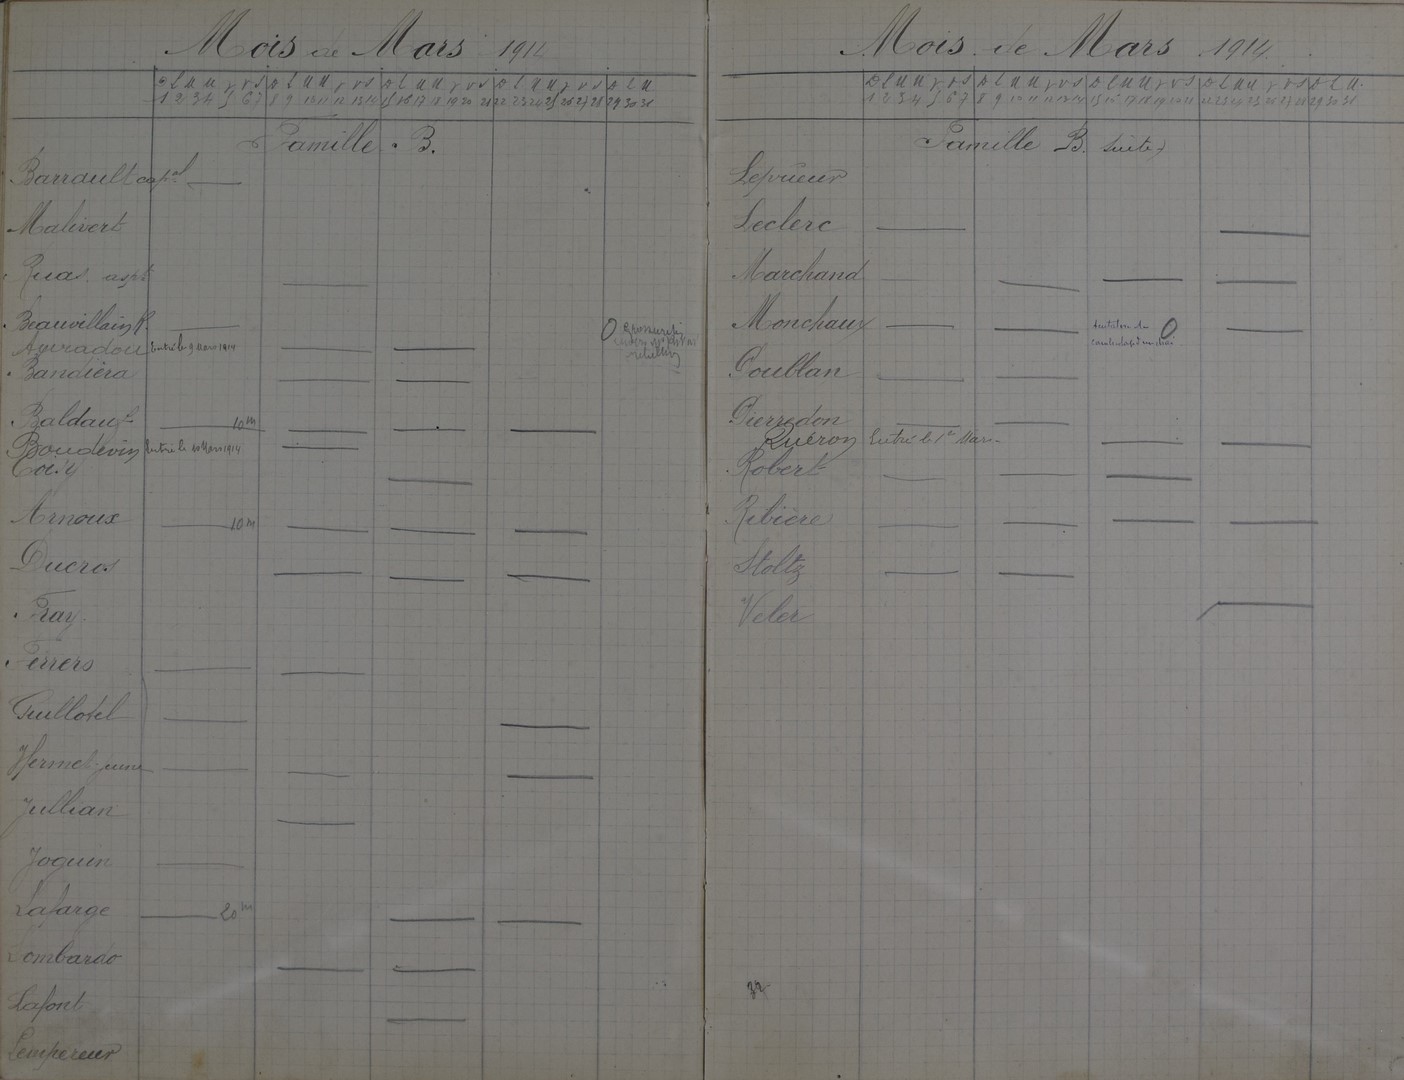 Mois de Mars 1914
D L M M J V S D L M M J V S D L M M J V S D L M M J V S D L M
1 2 3 4 5 6 7 8 9 10 11 12 13 14 15 16 17 18 19 20 21 22 23 24 25 26 27 28 29 30 31
Famille B.
Barrault cap al
Malivert
Ruas aspt
Beauvillain R.
Ayvradou Entré le 9 Mars 1914
Bandiera
Baldauf 10 m
Boudevin Entré le 10 Mars 1914
Coïy
Arnoux 10 m
Ducros
Fray
Ferrers
Guillotel
Hermet jeune
Jullian
Joguin
Lafarge 20 m
Lombardo
Lafont
Lempereur
Mois de Mars 1914
D L M M J V S D L M M J V S D L M M J V S D L M M J V S D L M
1 2 3 4 5 6 7 8 9 10 11 12 13 14 15 16 17 18 19 20 21 22 23 24 25 26 27 28 29 30 31
Famille B. suite)
Leprieur
Leclerc
Marchand
Monchaux
Poublan
Pierredon
Quéron Entré le 1er Mars
Robert
Ribière
Stoltz
Veler